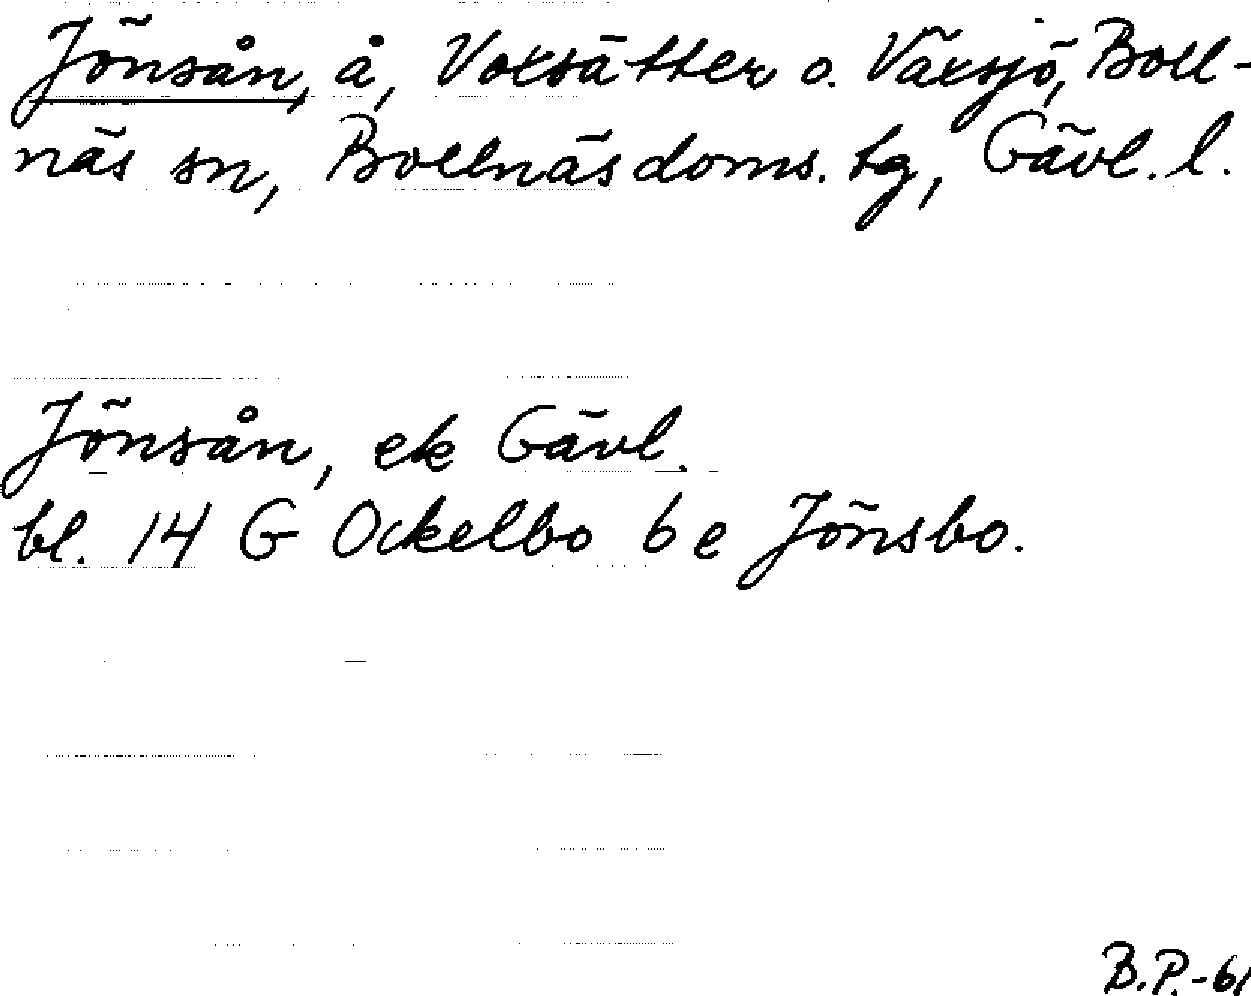 Jönsån, å, Voxsätter o. Växsjö, Boll-
näs sn, Bollnäs doms. tg, Gävl. l.
Jönsån, ek Gävl.
bl. 14 G Ockelbo 6 e Jönsbo.
B.P.-61